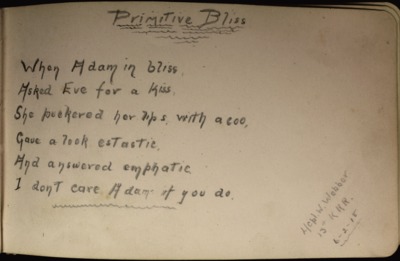 Primitive Bliss
When Adam in bliss,
Asked Eve for a kiss,
She puckered her lips, with a coo,
Gave a look estastic,
And answered emphatic
I don't care Adam if you do.
L/Cpl. W. Webber
13th K.R.R.
6-2-15